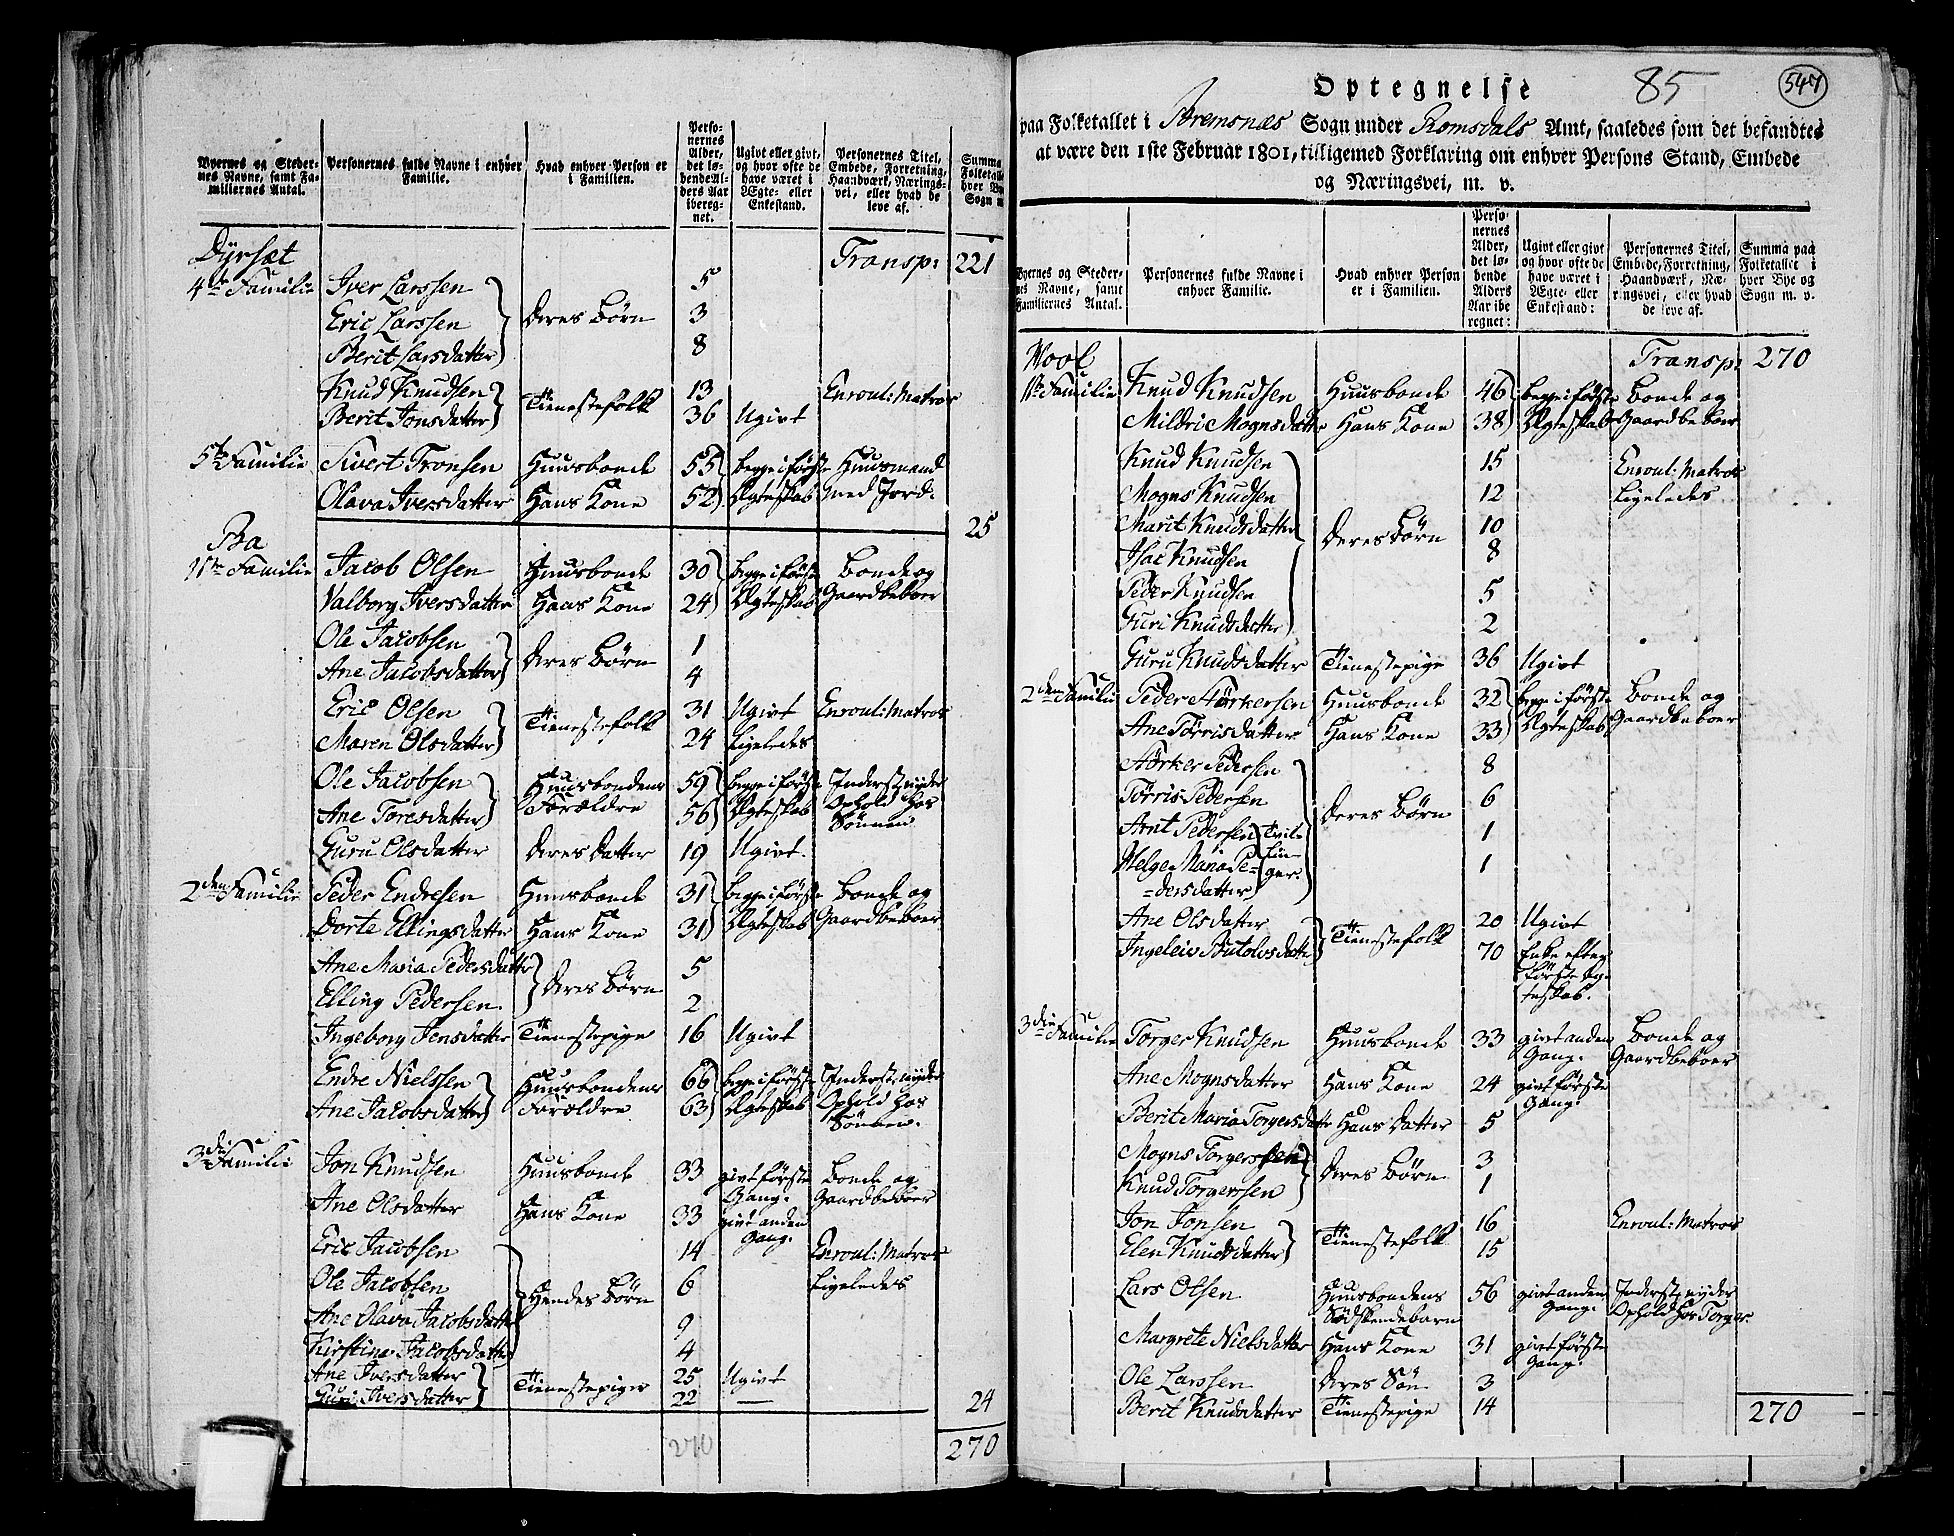 Byernes og Steder-
nes Navne, samt Fa-
miliernes Antal.
Personernes fulde Navne i enhver
Familie.
Hvad enhver Person er
i Familien.
Perso-
nernes
Alder,
det lø-
bende Al-
ders Aar
iberegnet.
Ugivt eller givt,
og hvor ofte de
have været i
Ægte- eller
Enkestand.
Personernes Titel,
Embede, Forretning,
Haandværk, Nærings-
vei, eller hvad de
leve af.
Summa
Folketalle
hver By
Sogn m
Dyrsæt Transp: 221
4de Familie Iver Larssen 5
Eric Larssen } deres Börn 3
Berit Larsdatter 8
Knud Knudsen } Tienestefolk 13 Enroul: Matros
Berit Jonsdatter 36 Ugivt
5te Familie Sivert Tronsen Huusbonde 55 begge i förste Huusmand
Olava Iversdatter Hans Kone 52 Ægteskab med Jord.
25
Ba
1ste Familie Jacob Olsen Huusbonde 30 begge i förste Bonde og
Valborg Iversdatter Hans Kone 24 Ægteskab Gaardbeboer
Ole Jacobsen } deres Börn 1
Ane Jacobsdatter 4
Eric Olsen } Tienestefolk 31 Ugivt Enroul: Matros
Maren Olsdatter 24 Ligeledes
Ole Jacobsen } Huusbondens 59 begge i förste Inderst, nyder
Ane Toresdatter Forældre 56 Ægteskab Ophold hos
Sönnen
Guru Olsdatter deres datter 19 Ugivt.
2den Familie Peder Endresen Huusbonde 31 begge i förste Bonde og
Dorte Ellingsdatter Hans Kone 31 Ægteskab Gaardbeboer
Ane Maria Pedersdatter } deres Börn 5
Elling Pedersen 2
Ingeborg Jensdatter Tienestepige 16 Ugivt
Endre Nielssen } Huusbondens 66 begge i förste Inderst, nyder
Ane Jacobsdatter Forældre 63 Ægteskab Ophold hos
Sönnen.
3die Familie Jon Knudsen Huusbonde 33 givt förste Bonde og
Gang. Gaardbeboer
Ane Olsdatter Hans Kone 33 givt anden
Gang.
Eric Jacobsen 14 Enroul: Matros
Ole Jacobsen } Hendes Börn 6 Ligeledes
Ane Olava Jacobsdatter 9
Kirstina Jacobsdatter 4
Ane Iversdatter } Tienestepiger 25 Ugivt
Guri Iversdatter 22 — 24
270 270
Optegnelse 85 547
paa Folketallet i Bremsnæs Sogn under Romsdals Amt, saaledes som det befandtes
at være den 1ste Februar 1801, tilligemed Forklaring om enhver Persons Stand, Embede
og Næringsvei, m. v.
Byernes og Steder-
nes Navne, samt
Familiernes Antal.
Personernes fulde Navne i
enhver Familie.
Hvad enhver Person
er i Familien.
Perso-
nernes
Alder,
det lø-
bende
Alders
Aar ibe
regnet:
Ugivt eller givt
og hvor ofte de
have været i
Ægte- eller
Enkestand:
Personernes Titel,
Embede, Forretning,
Haandværk, Næ-
ringsvei, eller hvad
de leve af.
Summa paa
Folketallet i
hver Bye og
Sogn m. v.
Transp: 270
1ste Familie Knud Knudsen Huusbonde 46 begge i förste Bonde og
Mildri Mognsdatter Hans Kone 38 Ægteskab Gaardbeboer
Knud Knudsen 15 Enroul: Matros
Mogns Knudsen 12 Ligeledes
Marit Knudsdatter } deres Börn 10
Isac Knudsen 8
Peder Knudsen 5
Guri Knudsdatter 2
Guru Knudsdatter Tienestepige 36 Ugivt
2den Familie Peder Störkersen Huusbonde 32 begge i förste Bonde og
Ane Törrisdatter Hans Kone 33 Ægteskab Gaardbeboer
Störker Pedersen 8
Törris Pedersen } deres Börn 6
Arnt Pedersen } Tvil- 1
Helge Maria Pe- lin- 1
-dersdatter ger.
Ane Olsdatter } Tienestefolk 20 Ugivt
Ingeleiv Butolvsdatter 70 Enke efter
förste Æg-
teskab.
3die Familie Torger Knudsen Huusbonde 33 givt anden Bonde og
Gang. Gaardbeboer
Ane Mognsdatter Hans Kone 24 givt förste
Gang.
Berit Maria Torgersdatter Hans datter 5
Mogns Torgerssen } deres Börn 3
Knud Torgerssen 1
Jon Jonsen } Tienestefolk 16 Enroul: Matros
Elen Knudsdatter 15
Lars Olsen Huusbondens 56 givt anden Inderst, nyder
Södskendebarn Gang. Ophold hos Torger
Margrete Nielsdatter Hans Kone 31 givt förste
Gang.
Ole Larssen deres Sön 3
Berit Knudsdatter Tienestepige 14 270